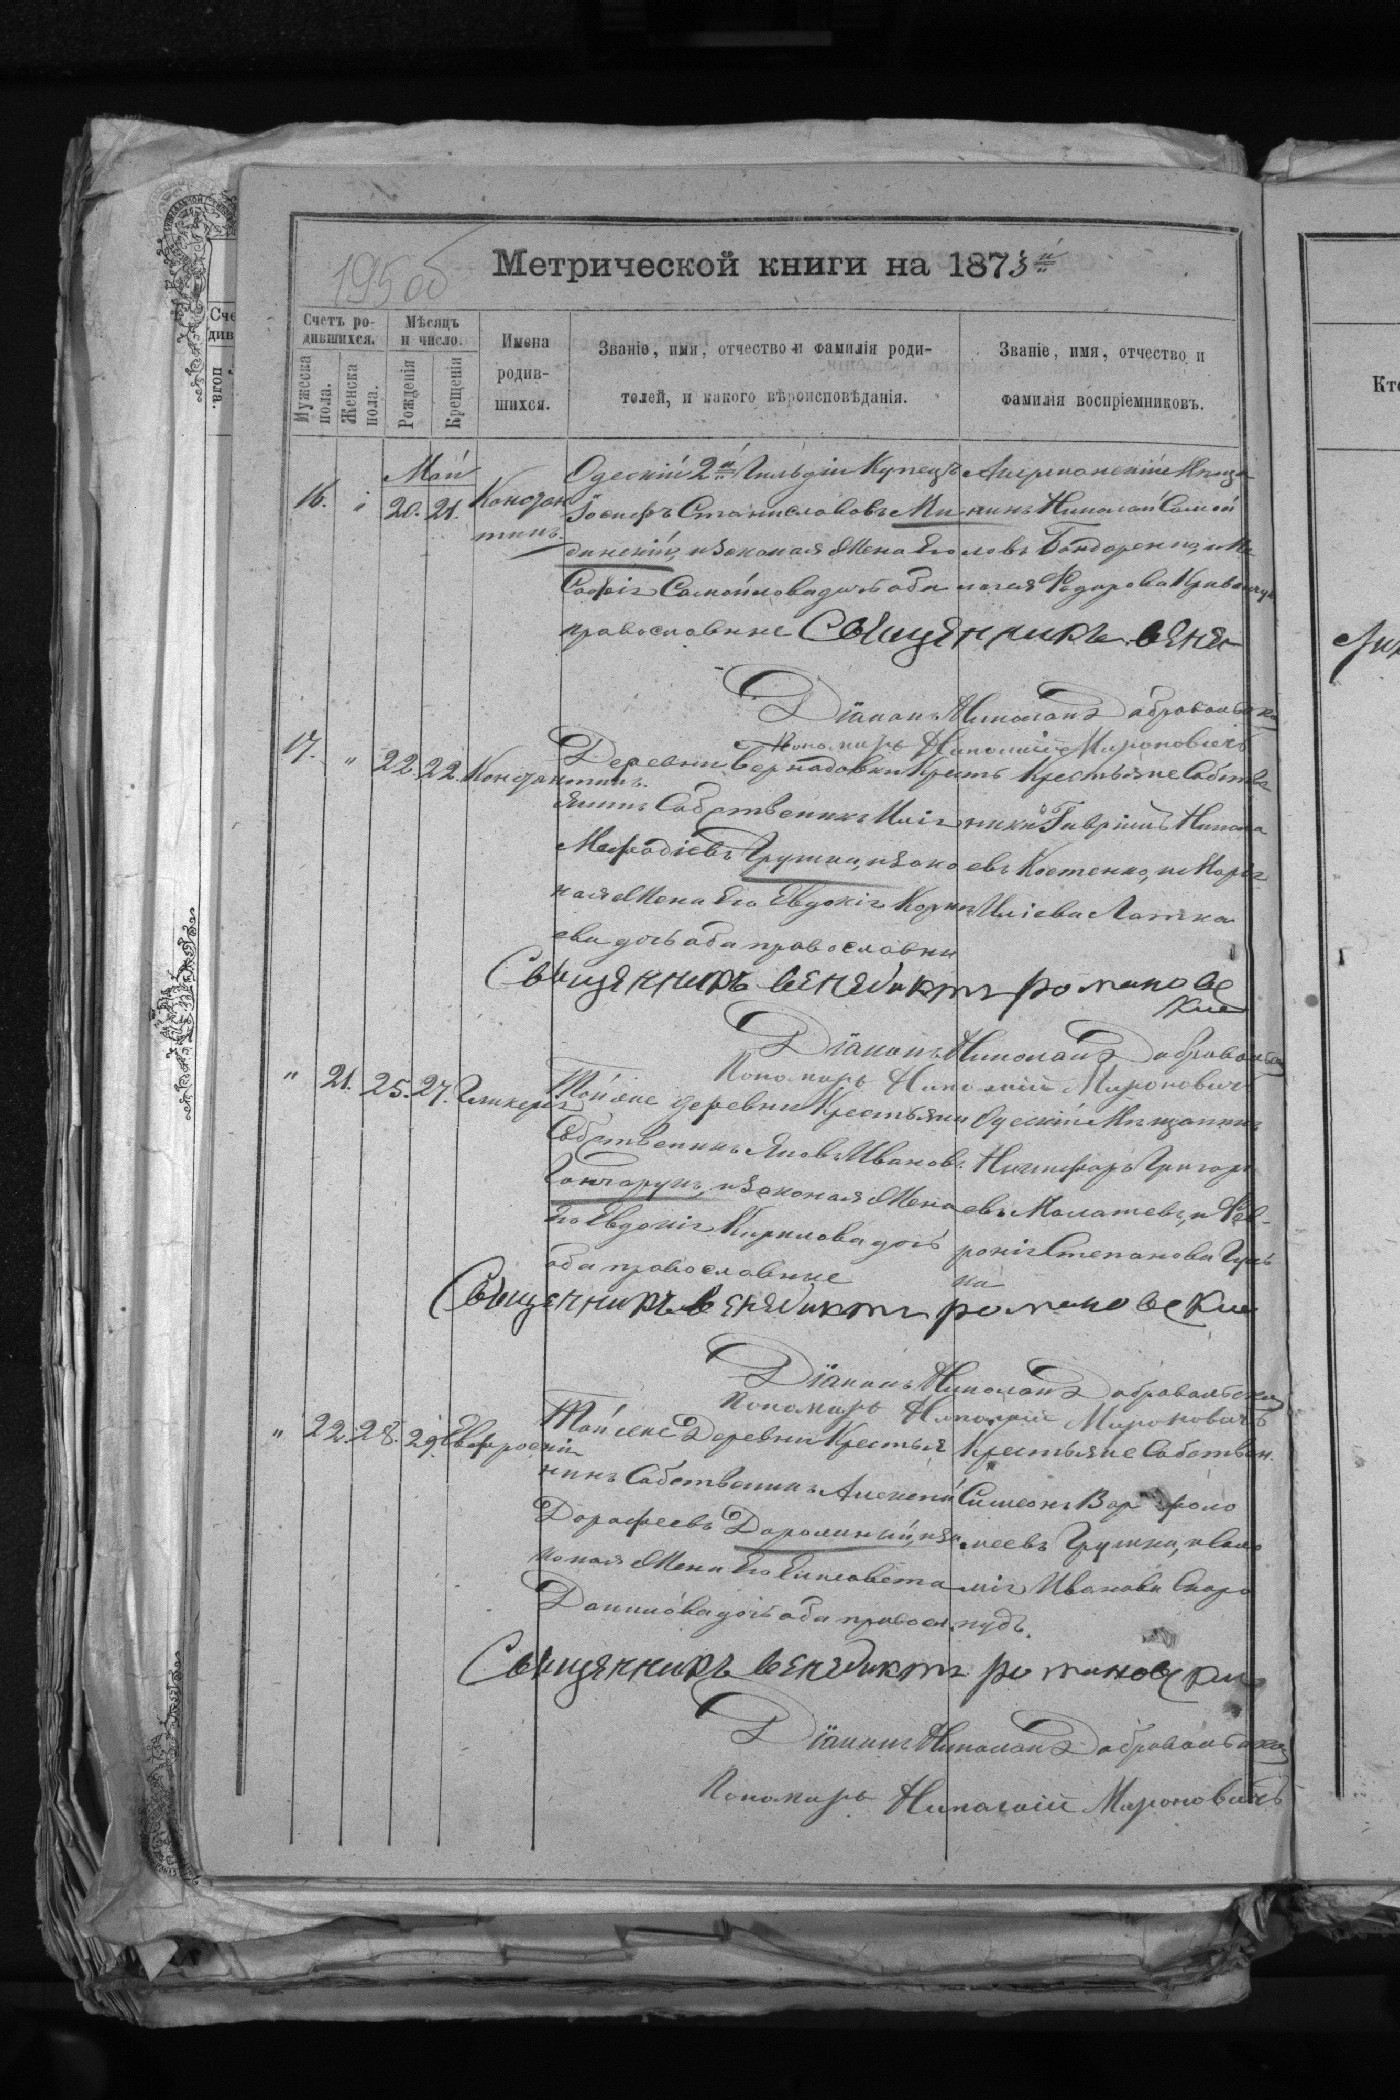 195 об
Метрической книги на 1873й
Счетъ ро-
дившихся.
Мѣсяцъ
и число.
Имена
родив-
шихся.
Званіе, имя, отчество и фамилія роди-
телей, и какого вѣроисповѣданія.
Званіе, имя, отчество и
фамилія воспріемниковъ.
Мужеска
пола.
Женска
пола.
Рожденія
Крещенія
Май
16. 20. 21. Констан
тинъ
Одескій 2й Гильдіи Купецъ
Іосифъ Станиславовъ
и законая Жена Его
Софія Самойлова дочь оба
православные
Николай
ловъ Бондаренко, и
Федорова
Священникъ вене-
Діаконъ Николай Добровольскій
Пономарь Николай Мироновичъ
17. " 22. 22. Константинъ.
Деревни Бернадовки Кресть
янинъ Собственикъ Илія
Мефодіевъ Грушки, и зако
ная Жена Его Евдокія Корни
ева дочь оба православни
Крестьяне Собстве
ники Гавріилъ Никола
евъ Костенко, и
Иліева
Священникъ венедиктъ романовс
кий
Діаконъ Николай Добровольскій
Пономарь Николай Мироновичъ
" 21. 25. 27. Гликерія
Той же деревни Крестьянин
Собственикъ Яковъ Ивановъ
Гончарукъ, и законая Жена
Его Евдокія Кирилова дочь
оба православные
Одескій Мещанинъ
Никифоръ Григорь
евъ Малашевъ, и Фев-
ронія Степанова
на
Священникъ венедиктъ романовский
Діаконъ Николай Добровольскій
Пономарь Николай Мироновичъ
" 22. 28. 29. Евфросинія
Той же Деревни Крестья
нинъ Собственикъ Алексей
Дорофеевъ и за
коная Жена Его Елисавета
Даниилова дочь оба правосл.
Крестьяне Собствен.
Симеонъ Варфоло
меевъ Грушки, и Сало
мія Иванова Скоро
пудъ.
Священникъ венедиктъ романовский
Діаконъ Николай Добровольскій
Пономарь Николай Мироновичъ